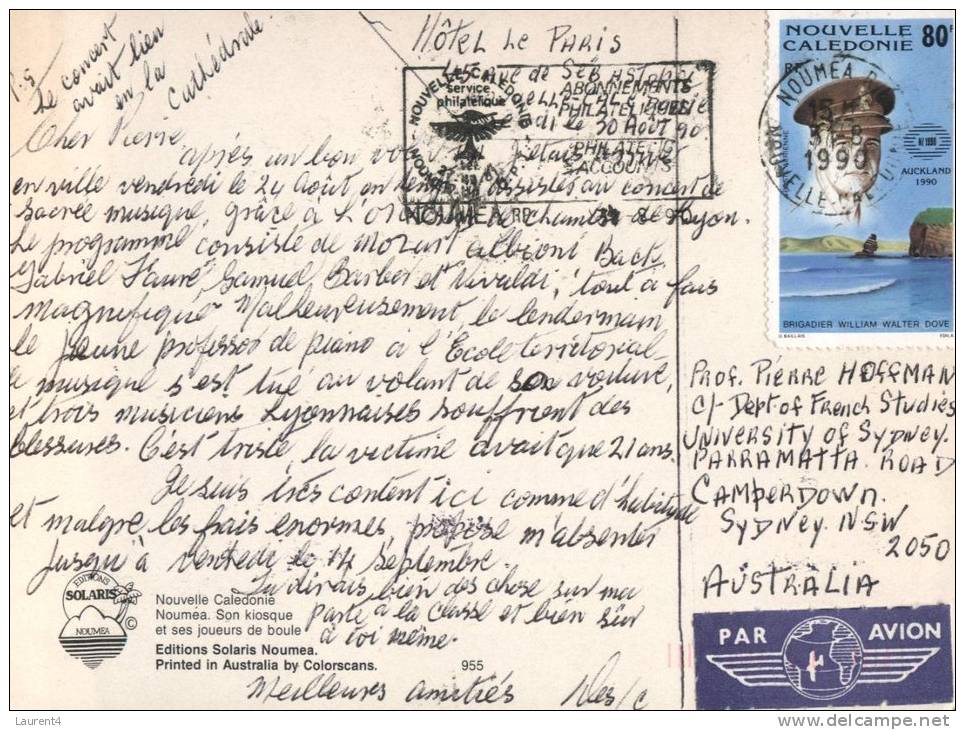 P.S
Le concert
avait lieu
en la
Cathédrale.
Hôtel Le Paris
45 rue de Sébastopol
le 30 Août 90
Cher Pierre
après un bon
en ville vendredi le 24 Août, on assister au concert de
sacrée musique, grâce à l'Or de Chambre de Lyon.
Le programme consiste de Mozart albioni Back
Gabriel Fauré, Samuel Barber et Vivaldi, tout à fais
magnifique Malheureusement le lendermain
le jeune professor de piano à l'École territorial
de musique s'est tué au volant de son voiture,
et trois musiciens Lyonnaises souffrient des
blessures. C'est triste, la victime avait que 21 ans.
Je suis très content ici comme d'habitude
et malgre les frais enormes, propose m'absenter
jusqu'à vendredi le 14 septembre.
Tu dirais bien des chose sur ma
parte à la classe et bien sûr
à toi même.
Meilleures amitiés Des/c
NOUVELLE CALEDONIE
service
philatélique
ABONNEMENTS
PHILATELIQUES
PHILATELIC
ACCOUNTS
NOUMEA RP 31 8 90
NOUVELLE
CALEDONIE
80F
RF
AUCKLAND
1990
BRIGADIER WILLIAM WALTER DOVE
NOUMEA R.P.
15 H
31-8
1990
NOUVELLE CALEDONIE
Prof. Pierre Hoffman
c/- Dept of French Studies
University of Sydney.
Parramatta Road
Camperdown.
Sydney. NSW
2050
Australia
PAR AVION
EDITIONS
SOLARIS
NOUMEA
©
Nouvelle Calédonie
Nouméa. Son kiosque
et ses joueurs de boule
Editions Solaris Noumea.
Printed in Australia by Colorscans. 955
Laurent4
www.delcampe.net